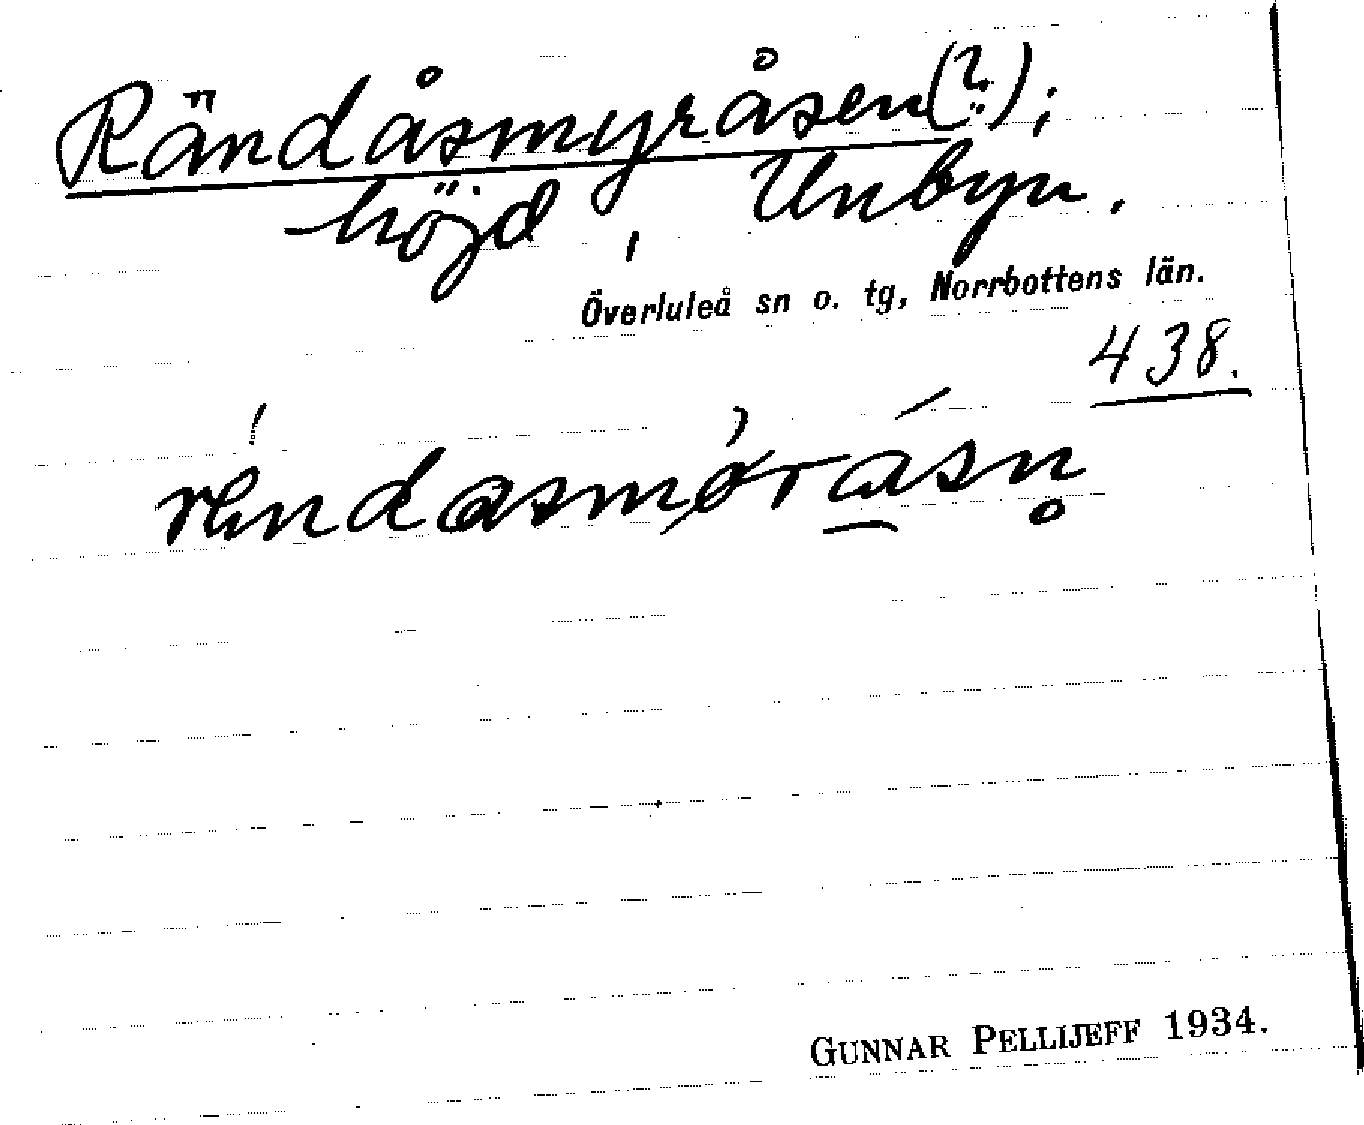 Rändåsmyråsen(?);
höjd, Unbyn.
Överluleå sn o. tg, Norrbottens län.
438.
rändasmøråsn̥
GUNNAR PELLIJEFF 1934.